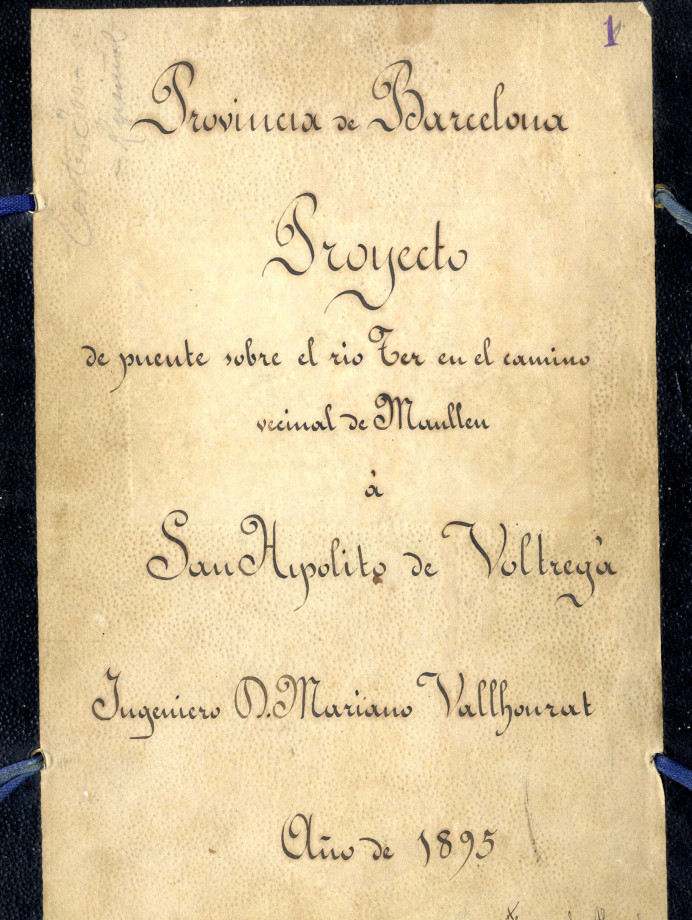 1
Provincia de Barcelona
Proyecto
de puente sobre el rio Ter en el camino
vecinal de Manlleu
à
San Hipolito de Voltregà
Ingeniero D. Mariano Vallhonrat
Año de 1895